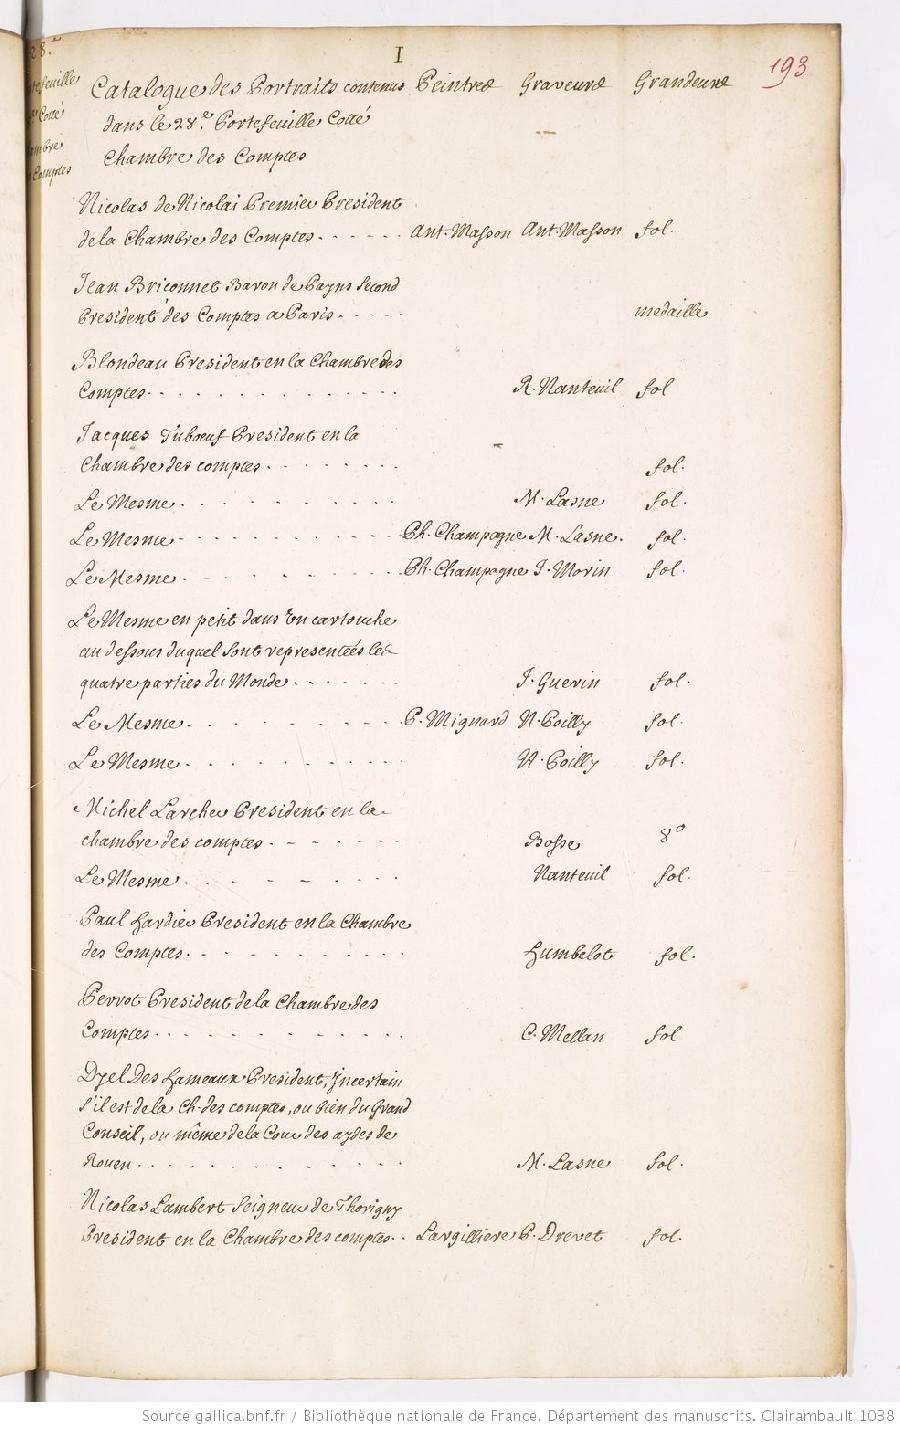 I
193
Catalogue des Portraits contenus Peintres Graveurs Grandeurs
dans le 28.e Portefeuille Cotté
Chambre des Comptes
Nicolas de Nicolai Premier President
de la Chambre des Comptes. - - - - - Ant. Masson Ant. Masson fol.
Jean Briconnet Baron de Second
President des Comptes a Paris. - - - medaille
Blondeau President en la Chambre des
Comptes. . . . . . . . . . . . . . . R. Nanteuil fol
Jacques Tubœuf President en la
Chambre des comptes. . . . . . . . fol.
Le Mesme. . . . . . . . . M. Lasne fol.
Le Mesme - . . . . . . . . Ph. Champagne M. Lasne. fol.
Le Mesme. . . . . . . . . Ph. Champagne J. Morin fol.
Le Mesme en petit dans un cartouche
au dessous duquel sont representées les
quatre parties du Monde. . . . . . . J. Guerin fol.
Le Mesme. . . . . . . . . P. Mignard N. Poilly fol.
Le Mesme. . . . . . . . . N. Poilly fol.
Michel Larcher President en la
chambre des comptes. - - . . . . Bosse 8o
Le Mesme. . . . . . . . . Nanteuil fol.
Paul hardier President en la Chambre
des Comptes. . . . . . . . . . . humbelot fol.
Perrot President de la Chambre des
Comptes. . . . . . . . . . . . . C. Mellan fol
Dyel Des hameaux President, Jncertain
s'il est de la Ch. des comptes, ou bien du Grand
Conseil, ou même de la Cour des aydes de
Rouen. . . . . . . . . . . . M. Lasne fol.
Nicolas Lambert Seigneur de Thorigny
President en la Chambre des comptes. . Largilliere P. Drevet fol.
Source gallica.bnf.fr / Bibliothèque nationale de France. Département des manuscrits. Clairambault 1038